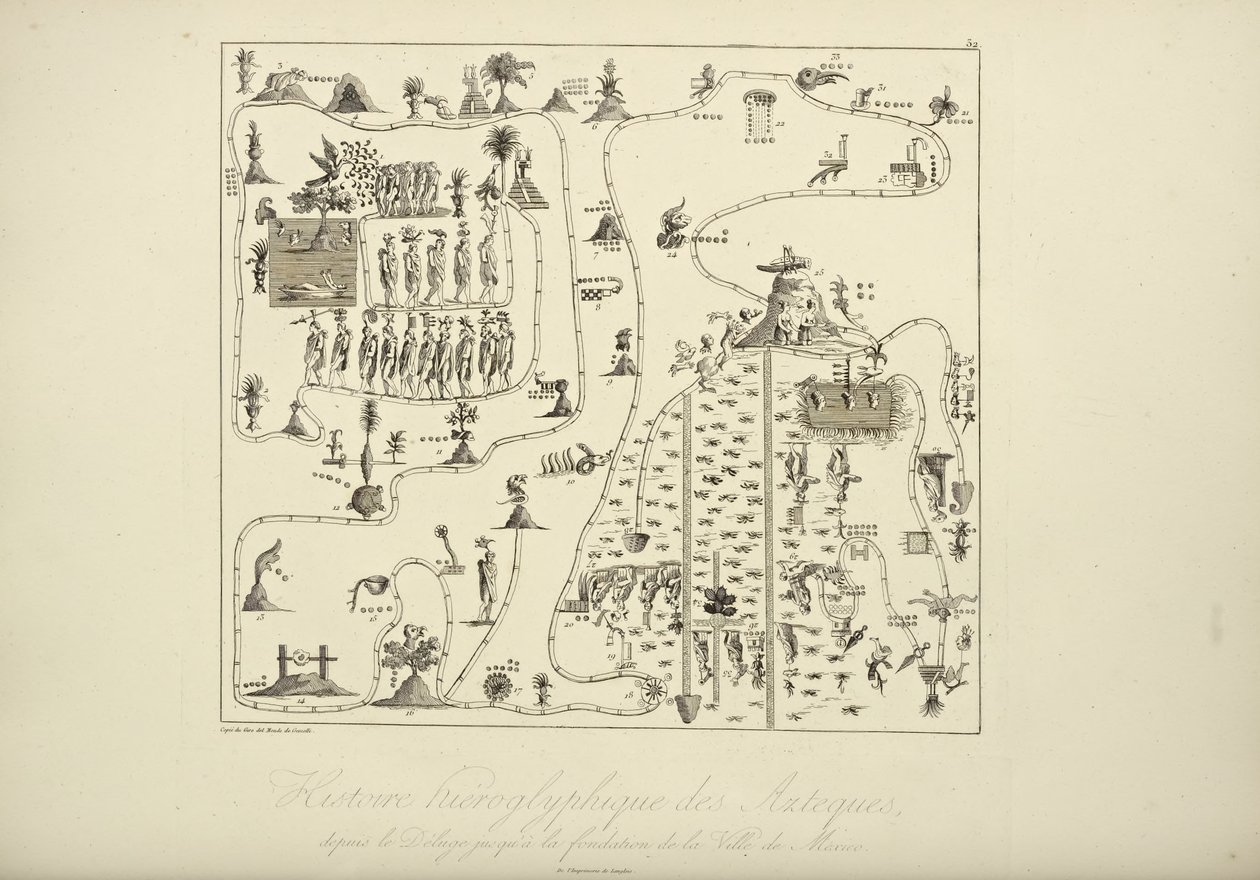 32.
3
5
33
4
6
31
22
21
1
32
23
7
24
8
25
9
2
11
10
12
13
15
20
19
14
16
17
18
Copié du Giro del Mondo de Gemelli.
Histoire hiéroglyphique des Aztèques,
depuis le Déluge jusqu'à la fondation de la Ville de Mexico.
De l'Imprimerie de Langlois.